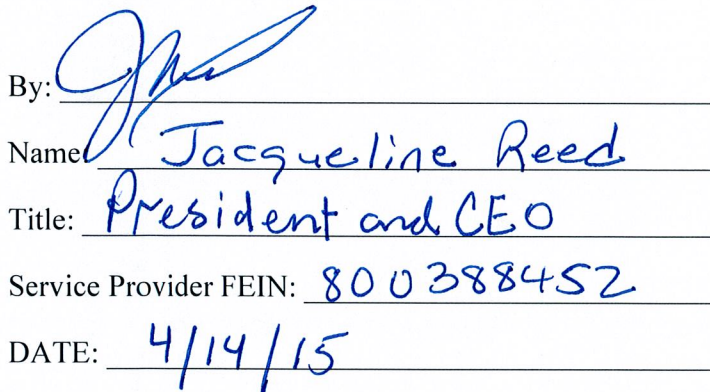 By:
Name: Jacqueline Reed
Title: President and CEO
Service Provider FEIN: 800388452
DATE: 4/14/15